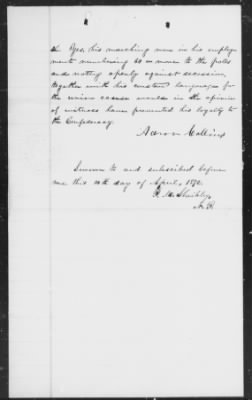 the Yes, his marching men in his employ-
ment numbering 60 or more to the poles
and votting openly against secession,
together with his constant languages for
the union cause would in the opinion
of witness have prevented his loyalty to
the Confederacy
Aaron Collins
Sworn to and subscribed before
me this 10th day of April, 1872